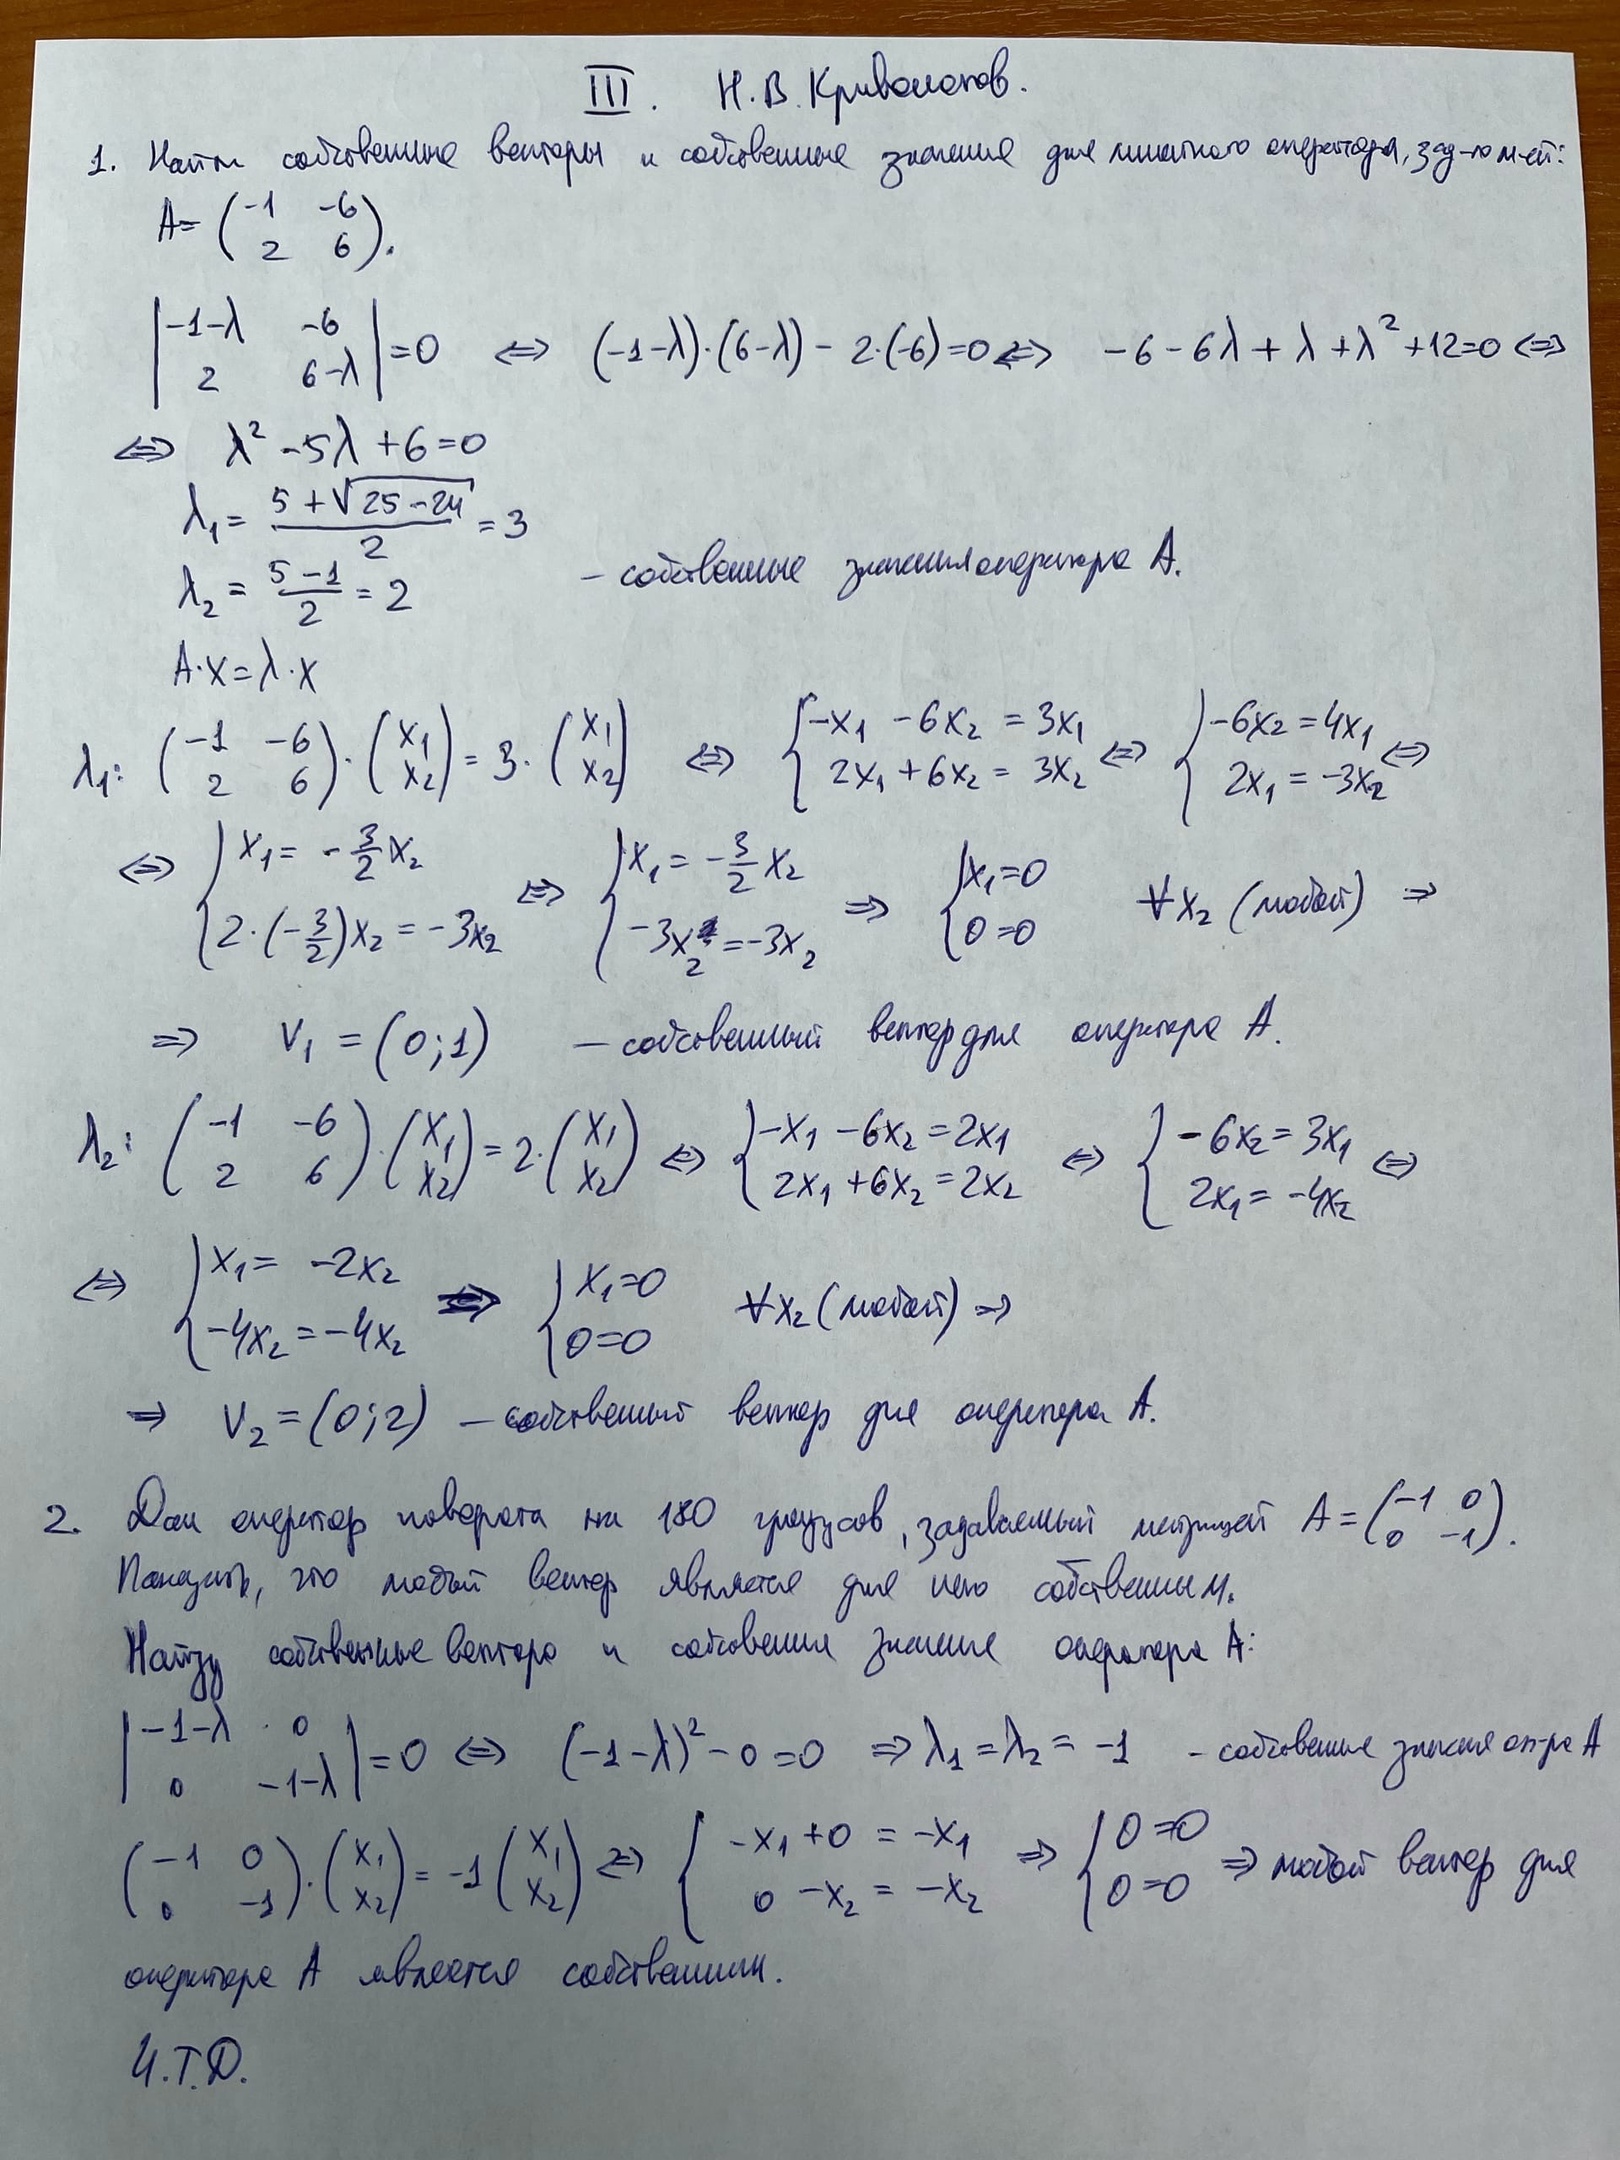 III. Н.В. Кривопотов.
1. Найти собственные векторы и собственные значения для линейного оператора, зад-го м-ей:
A = (-1 -6; 2 6).
|-1-λ -6; 2 6-λ| = 0 ⇔ (-1-λ)·(6-λ) - 2·(-6) = 0 ⇔ -6 - 6λ + λ + λ² + 12 = 0 ⇔
⇔ λ² - 5λ + 6 = 0
λ₁ = (5 + √(25-24))/2 = 3
λ₂ = (5-1)/2 = 2 – собственные значения оператора A.
A·X = λ·X
λ₁: (-1 -6; 2 6)·(x₁; x₂) = 3·(x₁; x₂) ⇔ { -x₁ - 6x₂ = 3x₁; 2x₁ + 6x₂ = 3x₂ ⇔ { -6x₂ = 4x₁; 2x₁ = -3x₂ ⇔
⇔ { x₁ = -3/2 x₂; 2·(-3/2)x₂ = -3x₂ ⇔ { x₁ = -3/2 x₂; -3x₂ = -3x₂ ⇒ { x₁ = 0; 0 = 0 ∀x₂ (любой) ⇒
⇒ V₁ = (0; 1) – собственный вектор для оператора A.
λ₂: (-1 -6; 2 6)·(x₁; x₂) = 2·(x₁; x₂) ⇔ { -x₁ - 6x₂ = 2x₁; 2x₁ + 6x₂ = 2x₂ ⇔ { -6x₂ = 3x₁; 2x₁ = -4x₂ ⇔
⇔ { x₁ = -2x₂; -4x₂ = -4x₂ ⇒ { x₁ = 0; 0 = 0 ∀x₂ (любой) ⇒
⇒ V₂ = (0; 2) – собственный вектор для оператора A.
2. Дан оператор поворота на 180 градусов, задаваемый матрицей A = (-1 0; 0 -1).
Показать, что любой вектор является для него собственным.
Найду собственные вектора и собственные значения оператора A:
|-1-λ 0; 0 -1-λ| = 0 ⇔ (-1-λ)² - 0 = 0 ⇒ λ₁ = λ₂ = -1 - собственные значения оп-ра A
(-1 0; 0 -1)·(x₁; x₂) = -1(x₁; x₂) ⇔ { -x₁ + 0 = -x₁; 0 - x₂ = -x₂ ⇒ { 0 = 0; 0 = 0 ⇒ любой вектор для
оператора A является собственным.
Ч.Т.Д.